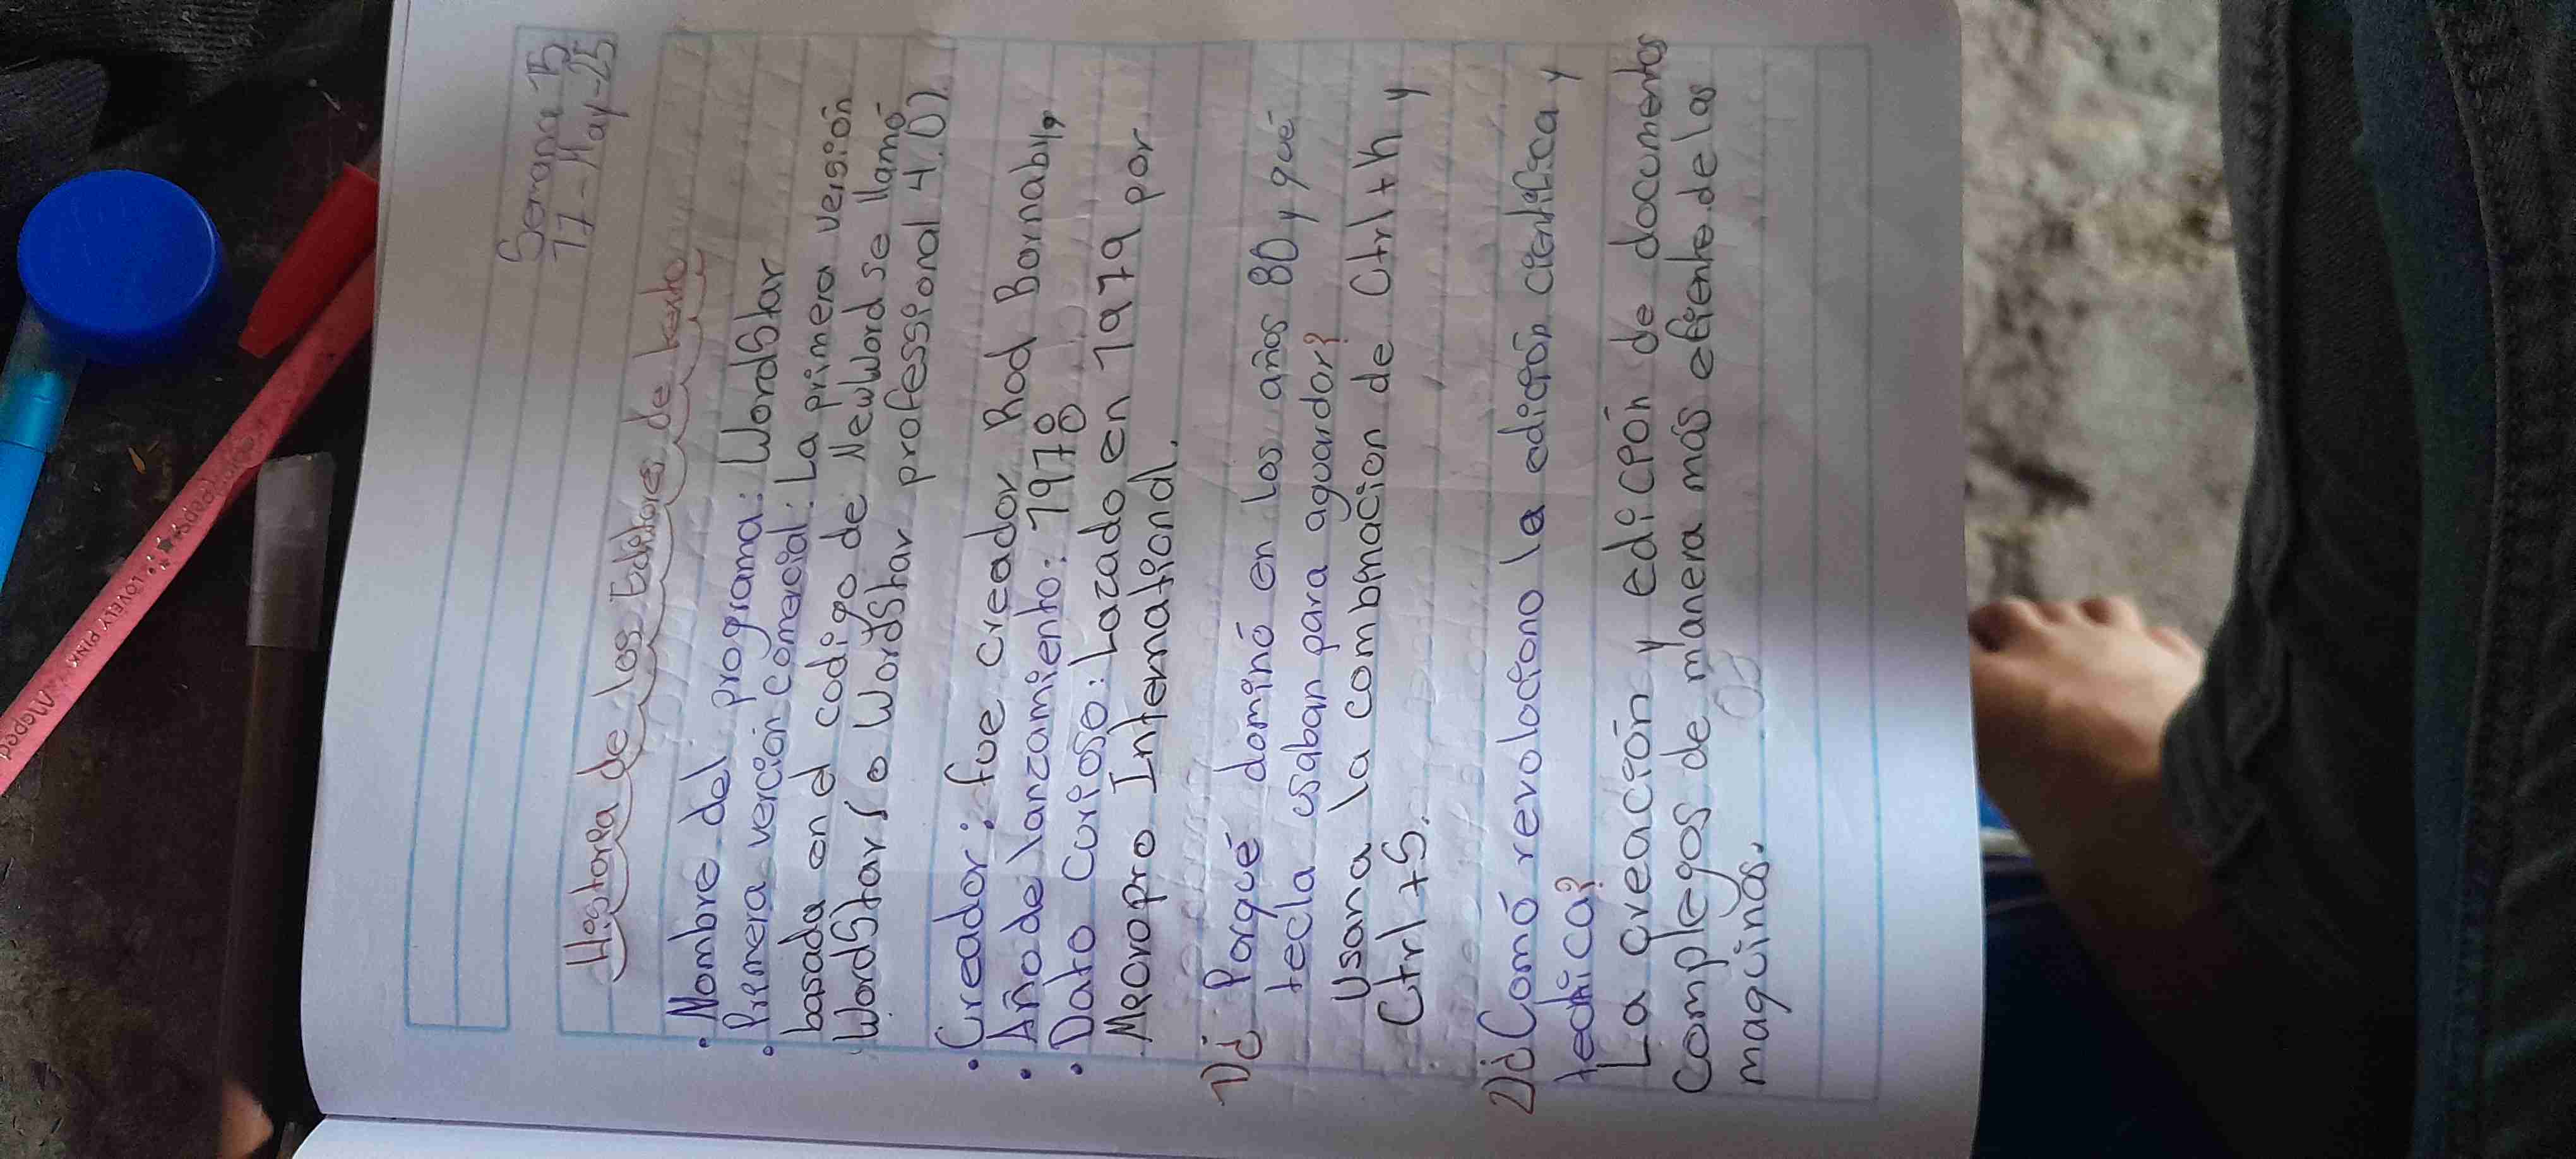 Semana 15
17-May-25
Historia de los Editores de texto
• Nombre del programa: WordStar
• Primera verción comercial: La primera versión
basada en el codigo de NewWord se llamó
WordStar, o WordStar professional 4.0).
• Creador: fue creador Rod Bornaby,
• Año de lanzamiento: 1978
• Dato curioso: Lazado en 1979 por
Micropro International.
1) ¿Porqué dominó en los años 80 y qué
tecla usaban para aguardor?
Usana la combinacion de Ctrl+k y
Ctrl+S.
2) ¿Comó revoluciono la edición cientifica y
tecnica?
La creación y edición de documentos
complegos de manera más efiente de las
maquinas.
Maped
LOVELY PINK
color'peps